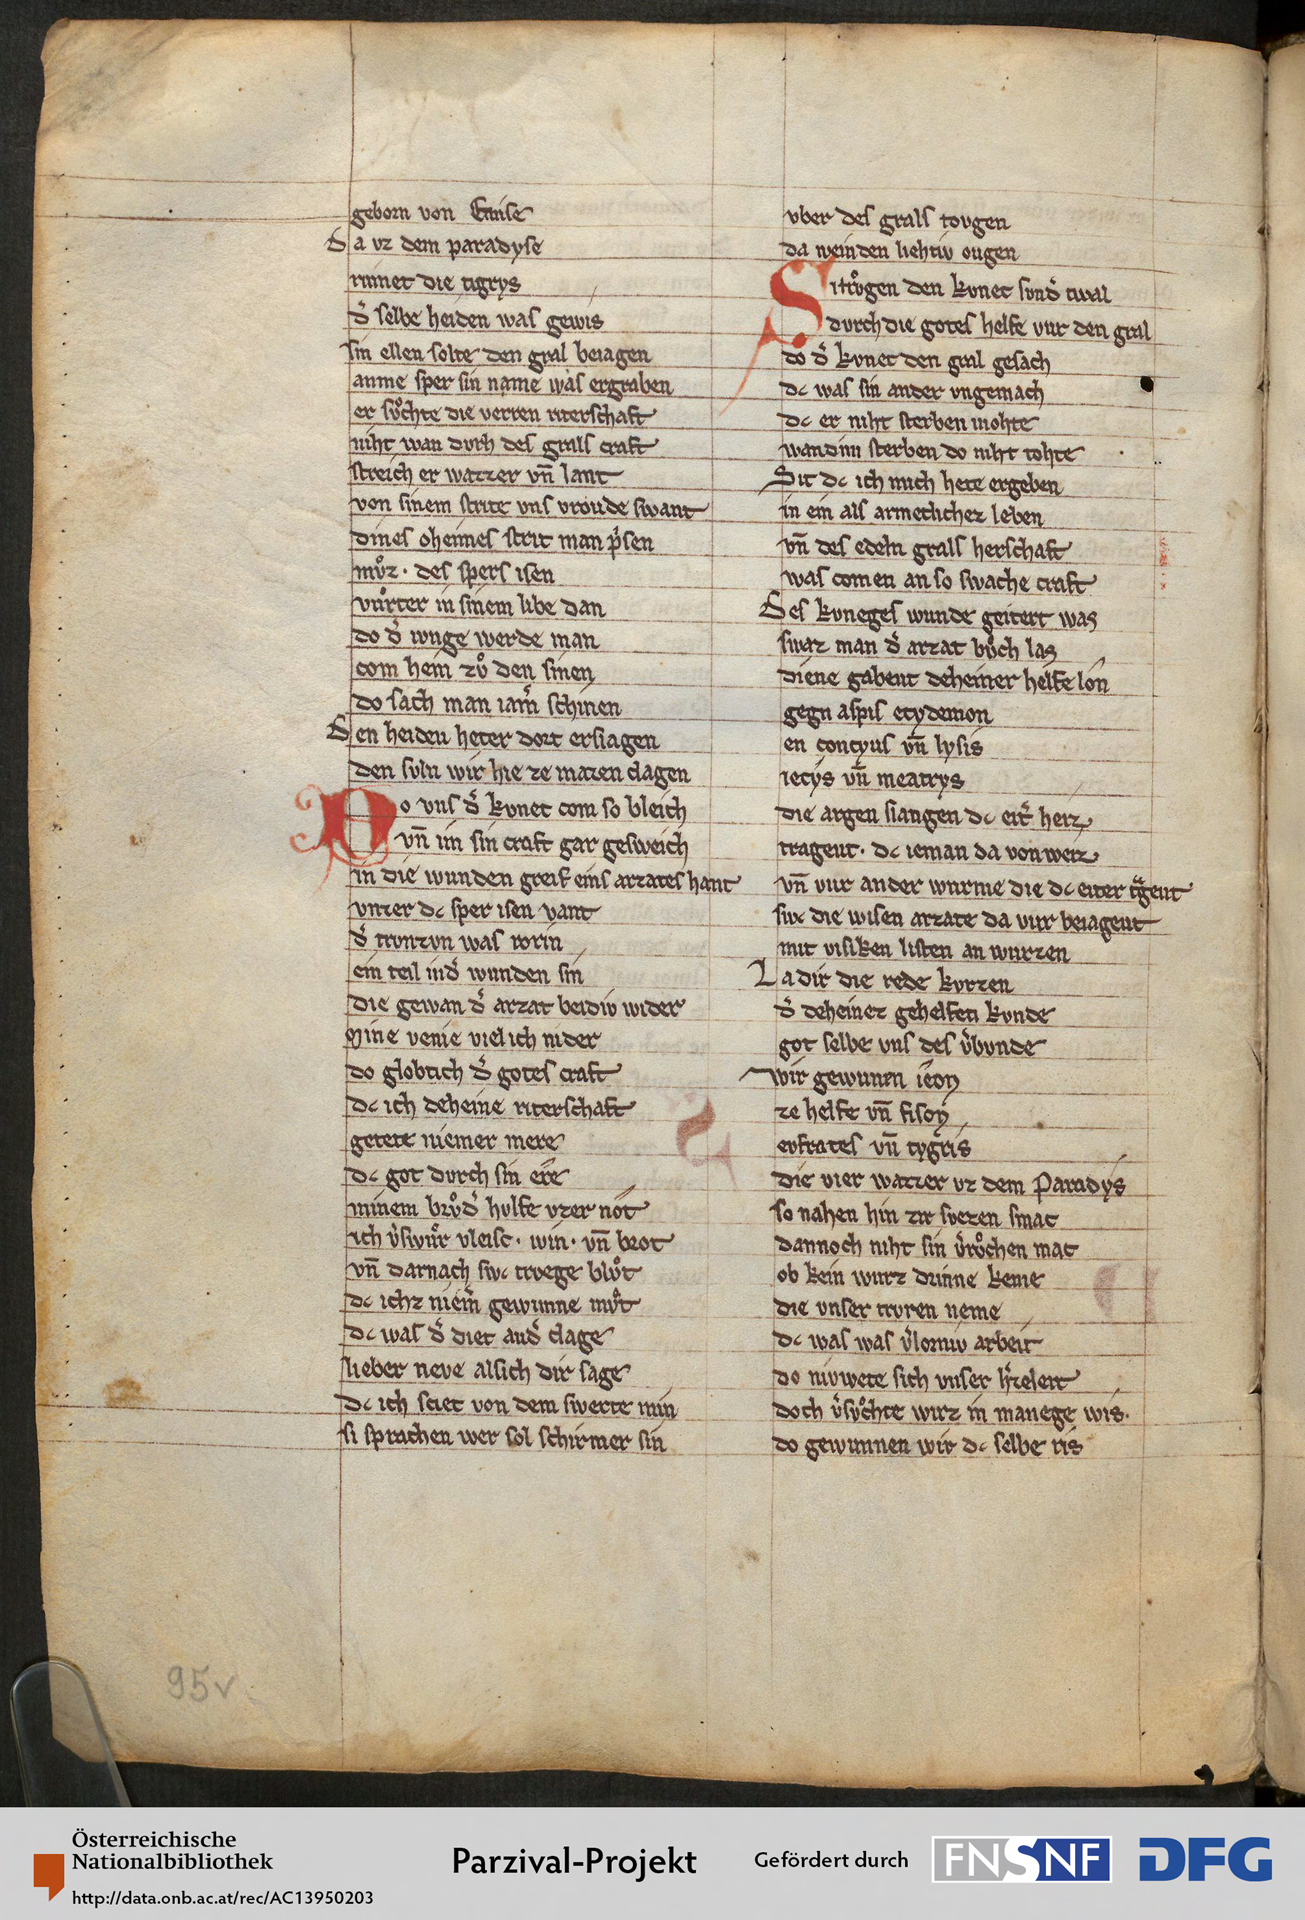 geborn von Ethnise
Da vz dem paradyse
rinnet die tigrys
d̾ selbe heiden was gewis
sin ellen solte den gral beiagen
anme sper sin name was ergraben
er sůchte die verren riterschaft
niht wan dvrh des grals craft
streich er wazzer vn̄ lant
von sinem strite vns vroude swant
dines oheimes strit man p̾sen
můz · des spers isen
vůrter in sinem libe dan
do d̾ ivnge werde man
com hein zů den sinen
do sach man iam̾ schinen
Den heiden heter dort erslagen
den svln wir hie ze mazen clagen
Do vns d̾ kvnec com so bleich
vn̄ im sin craft gar gesweich
in die wunden greif eins arzates hant
vnzer dc sper isen vant
d̾ trvnzvn was rorin
ein teil ind̾ wunden sin
die gewan d̾ arzat beidiv wider
Mine venie viel ich nider
do globtich d̾ gotes craft
dc ich deheine riterschaft
getete niemer mere
dc got dvrch sin ere
minem brůd̾ hvlfe vzer not
ich v̾swůr vleisc · win · vn̄ brot
vn̄ darnach swc trvege blůt
dc ichz niem̾ gewunne můt
dc was d̾ diet and̾ clage
lieber neve alsich dir sage
dc ich sciet von dem swerte min
si sprachen wer sol schirmer sin
vber des grals tovgen
da weinden liehtiv ougen
Si trůgen den kvnec svnd̾ twal
dvrch die gotes helfe vur den gral
do d̾ kvnec den gral gesach
dc was sin ander vngemach
dc er niht sterben mohte
wandim sterben do niht tohte
Sit dc ich mich hete ergeben
in ein als armeclichez leben
vn̄ des edeln grals herschaft
was comen an so swache craft
Des kvneges wunde geitert was
swaz man d̾ arzat bůch las
diene gabent deheiner helfe lon
gegn aspis ecydemon
en contyus vn̄ lysis
iecys vn̄ meatrys
die argen slangen dc eit̾ heiz
tragent · dc ieman da von weiz
vn̄ vur ander wurme die dc eiter tragent
swc die wisen arzate da vur beiagent
mit visiken listen an wurzen
La dir die rede kvrzen
d̾ deheinez gehelfen kvnde
got selbe vns des v̾bvnde
wir gewunnen ieon
ze helfe vn̄ fison
eufrates vn̄ tygris
die vier wazzer vz dem Paradys
so nahen hin zir svezen smac
dannoch niht sin v̾rochen mac
ob kein wurz drinne keme
die vnser trvren neme
dc was was v̾lorniv arbeit
do nivwete sich vnser h̾zeleit
doch v̾sůchte wirz in manege wis ·
do gewunnen wir dc selbe ris
95v
Österreichische
Nationalbibliothek
http://data.onb.ac.at/rec/AC13950203
Parzival-Projekt
Gefördert durch
FNSNF
DFG